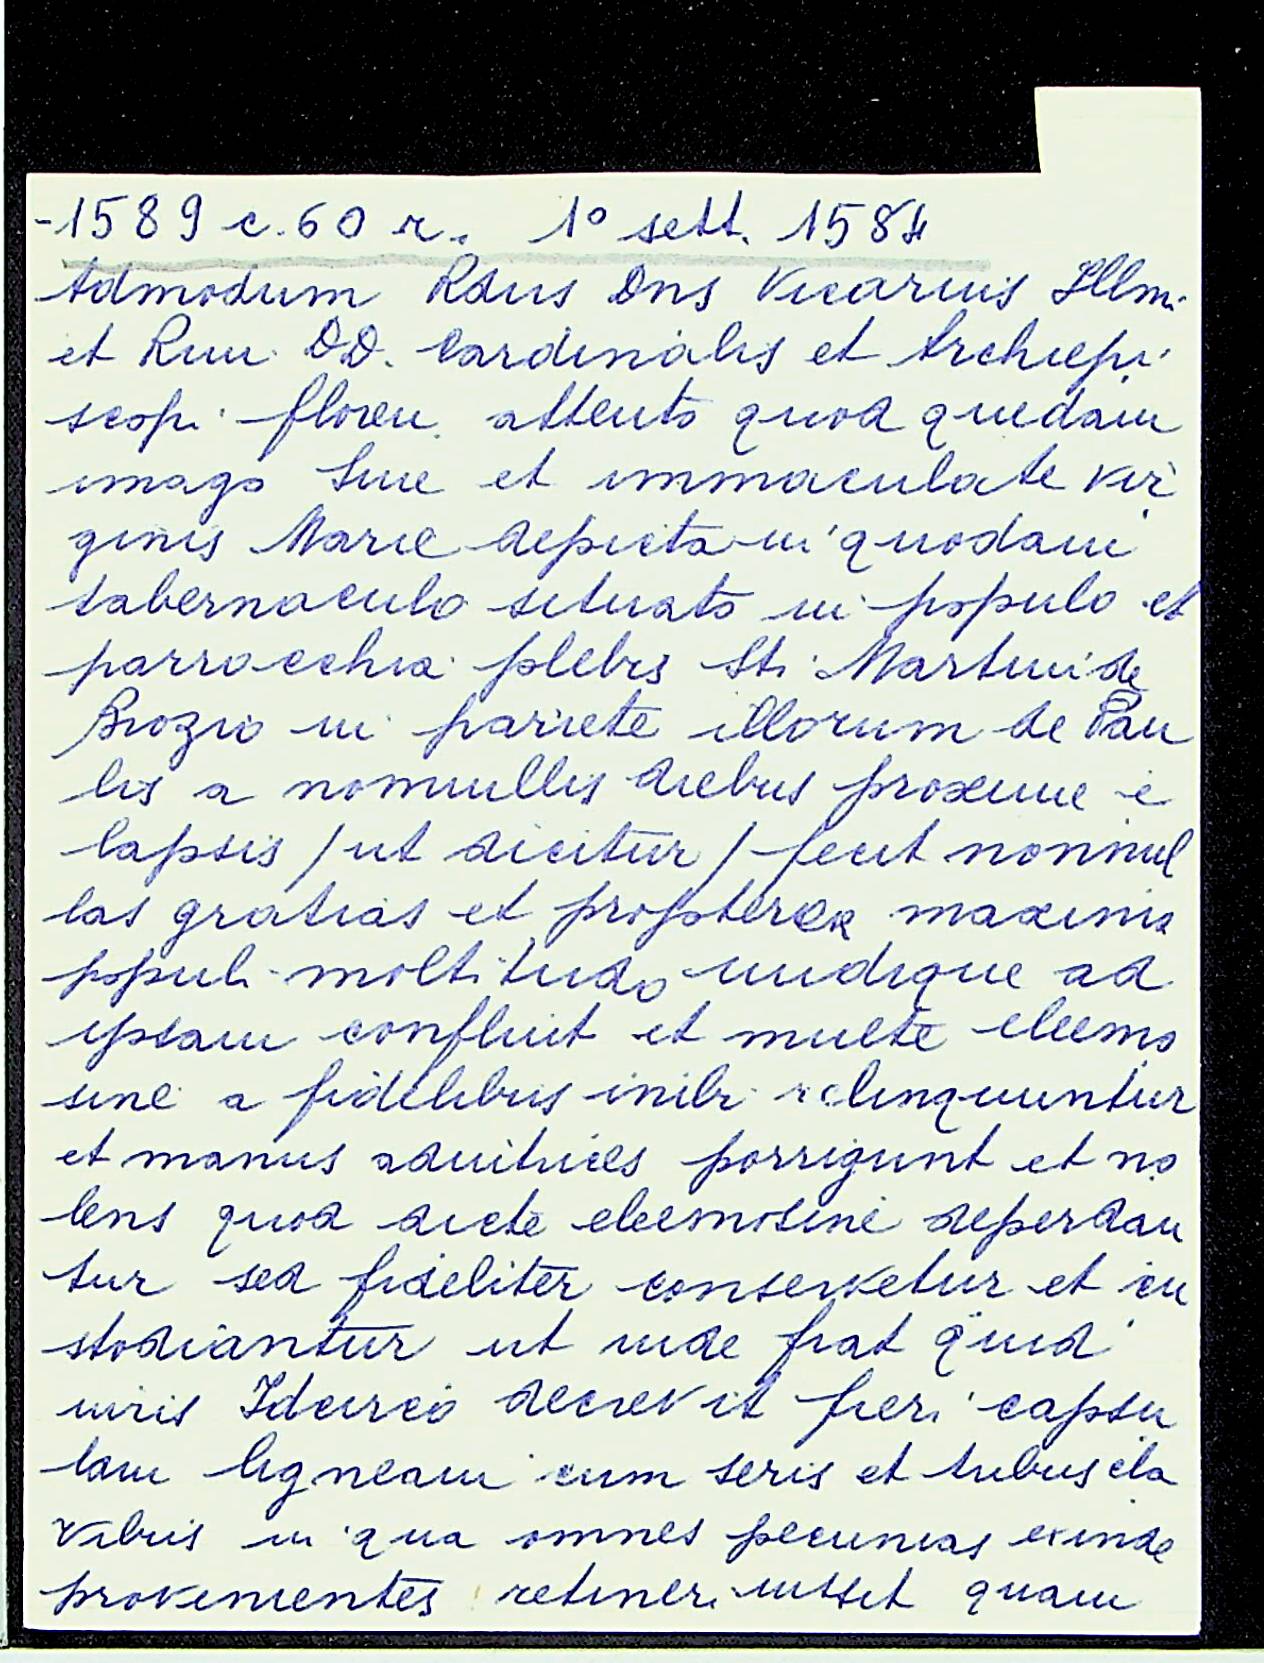 -1589 c. 60 r. 1° sett. 1584
Admodum Rdus Dns Vicarius Illm.
et Rmi DD. Cardinalis et Archiepi
scopi floren. attento quod quedam
imago Sme et immaculate vir
ginis Marie depicta in quodam
tabernaculo situato in populo et
parrocchia plebis Sti Martini de
Brozio in pariete illorum de Pau
lis a nonnullis diebus proxime e
lapsis / ut dicitur / fecit nonnul
las gratias et propterea maxima
populi moltitudo undique ad
ipsam confluit et multe eleemo
sine a fidelibus inibi relinquuntur
et manus adiutrices porrigunt et no
lens quod dicte eleemosine deperdan
tur sed fideliter conservetur et cu
stodiantur ut inde fiat quid
iuris Idcirco decrevit fieri capsu
lam ligneam cum seris et tribus cla
vibus in qua omnes pecunias exinde
provenientes retineri iussit quam